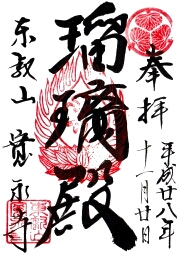 奉拝
平成廿八年
十一月廿日
瑠璃殿
東叡山 寛永寺